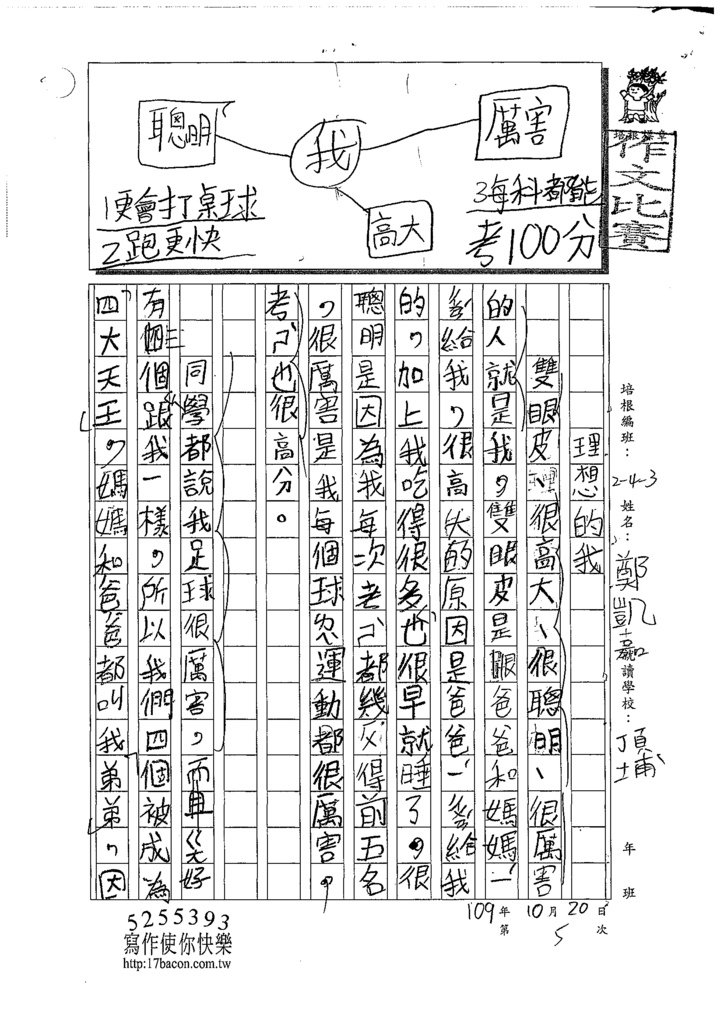 聰明
我
厲害
高大
1更會打桌球
2跑更快
3每科都能
考100分
培根文章
作文比賽
培根編班：2-4-3
姓名：鄭凱嘉
就讀學校：頂埔
年 班
109年10月20日
第5次
理想的我
雙眼皮、很高大、很聰明、很厲害
的人就是我，雙眼皮是眼爸爸和媽媽一
給我，很高大的原因是爸爸一給我
的，加上我吃得很多也很早就睡了。很
聰明是因為我每次考ㄕˋ都幾乎得前五名
，很厲害是我每個球類運動都很厲害，
考ㄕˋ也很高分。
同學都說我足球很厲害，而且ㄍㄤ好
有三個跟我一樣，所以我們四個被成為
四大天王，媽媽和爸爸都叫我弟弟，因
5255393
寫作使你快樂
http:17bacon.com.tw